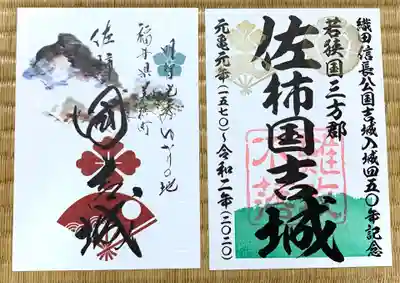 明智光秀ゆかりの地
福井県美浜町
佐柿
國吉城
織田信長公国吉城入城四五〇年記念
若狭国三方郡
佐柿国吉城
難攻
不落
元亀元年(一五七〇)～令和二年(二〇二〇)